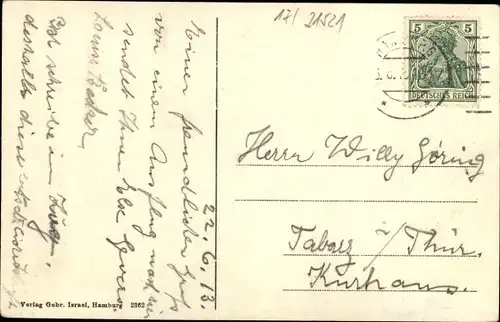 17/ 21521
5 5
DEUTSCHES REICH
22.6.13.
Einen freundlichen Gruß
von einem Ausflug nach hier
sendet Ihnen Else
Louise
Ich schreibe im Zug,
deshalb diese
Herrn Willy Göring
Tabarz i/Thür.
Kurhaus.
Verlag Gebr. Israel, Hamburg 2362